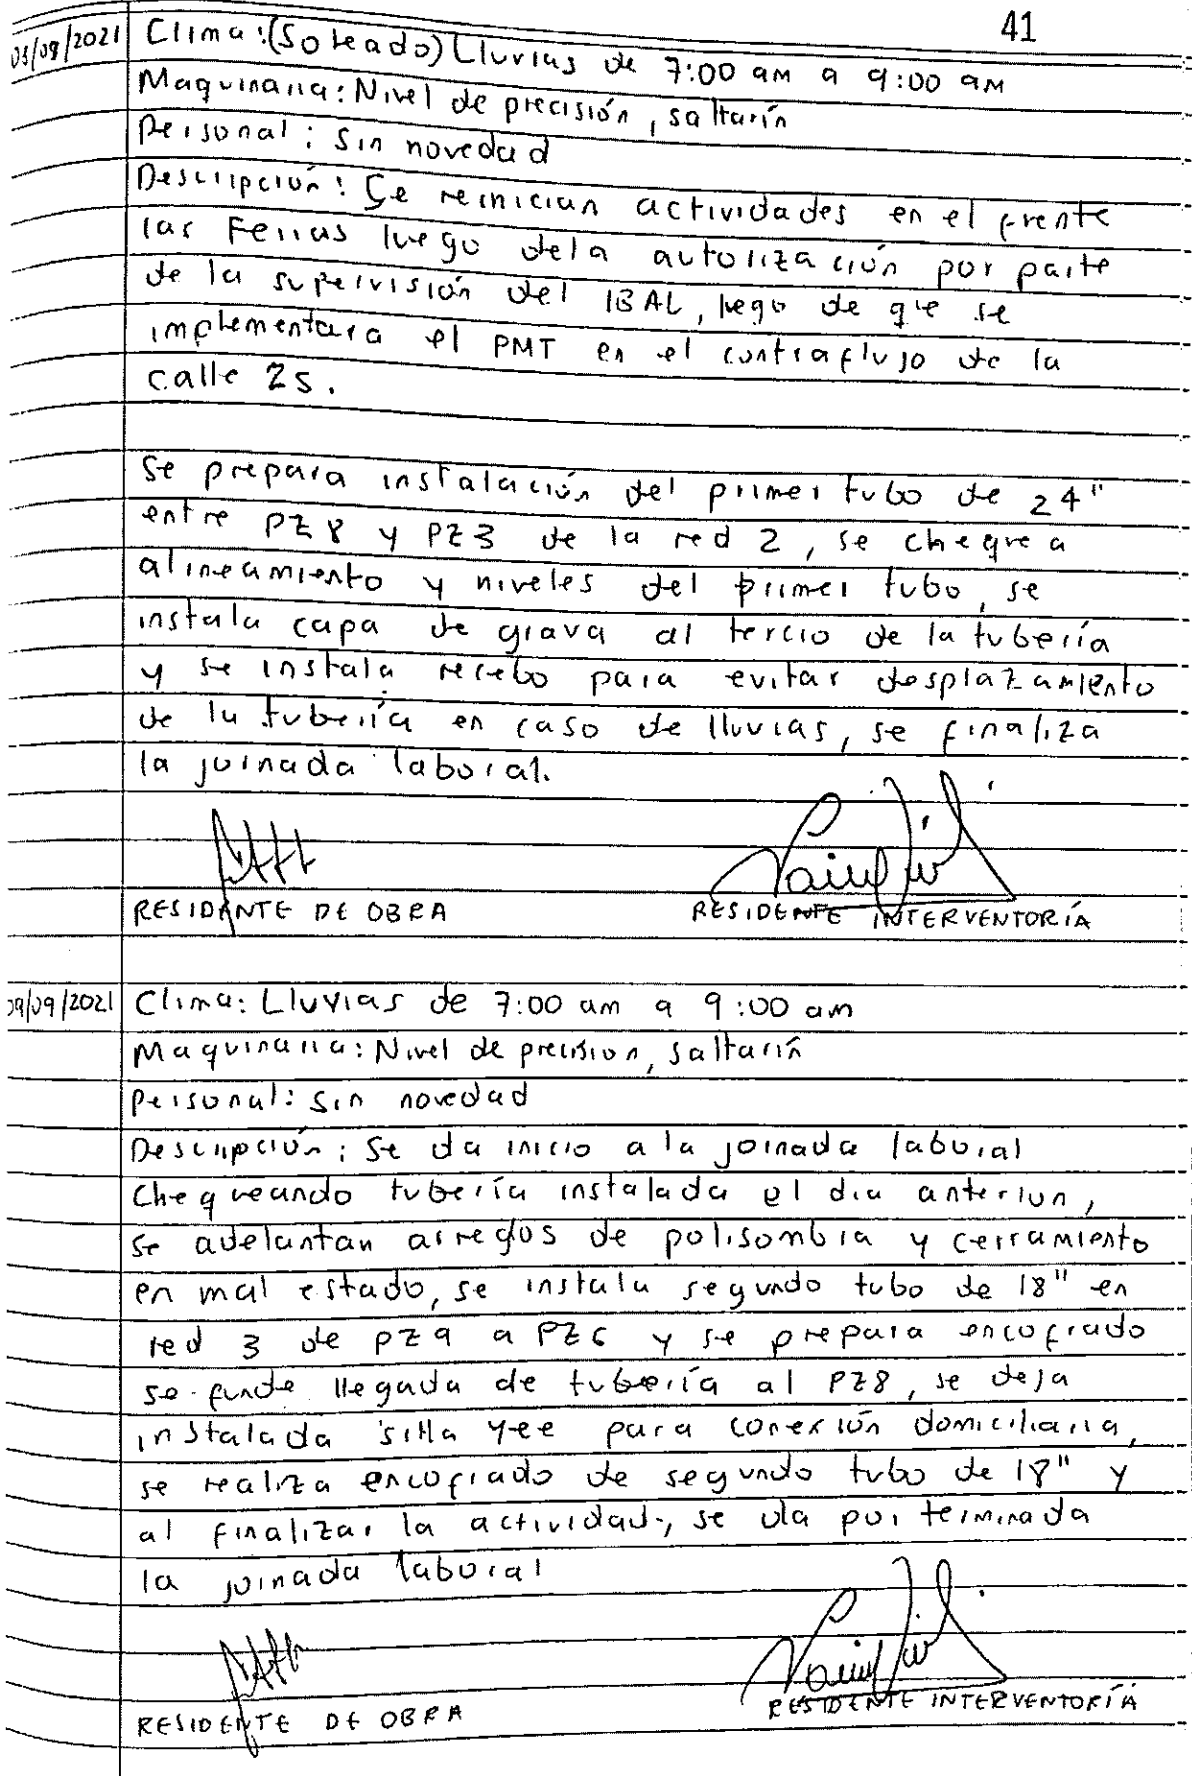 41
03/09/2021 Clima: (Soleado) Lluvias de 7:00 am a 9:00 am
Maquinaria: Nivel de precisión, saltarín
Personal: Sin novedad
Descripción: Se reinician actividades en el frente
las Ferias luego dela autorización por parte
de la supervisión del IBAL, luego de que se
implementara el PMT en el contraflujo de la
calle 25.
Se prepara instalación del primer tubo de 24"
entre PZ8 y PZ3 de la red 2, se chequea
alineamiento y niveles del primer tubo, se
instala capa de grava al tercio de la tubería
y se instala recebo para evitar desplazamiento
de la tubería en caso de lluvias, se finaliza
la jornada laboral.
RESIDENTE DE OBRA RESIDENTE INTERVENTORÍA
09/09/2021 Clima: Lluvias de 7:00 am a 9:00 am
Maquinaria: Nivel de precisión, saltarín
Personal: Sin novedad
Descripción: Se da inicio a la jornada laboral
chequeando tubería instalada el dia anterior,
se adelantan arreglos de polisombra y cerramiento
en mal estado, se instala segundo tubo de 18" en
red 3 de PZ9 a PZ6 y se prepara encofrado
se funde llegada de tubería al PZ8, se deja
instalada silla yee para conexión domiciliaria,
se realiza encofrado de segundo tubo de 18" y
al finalizar la actividad, se da por terminada
la jornada laboral
RESIDENTE DE OBRA RESIDENTE INTERVENTORÍA